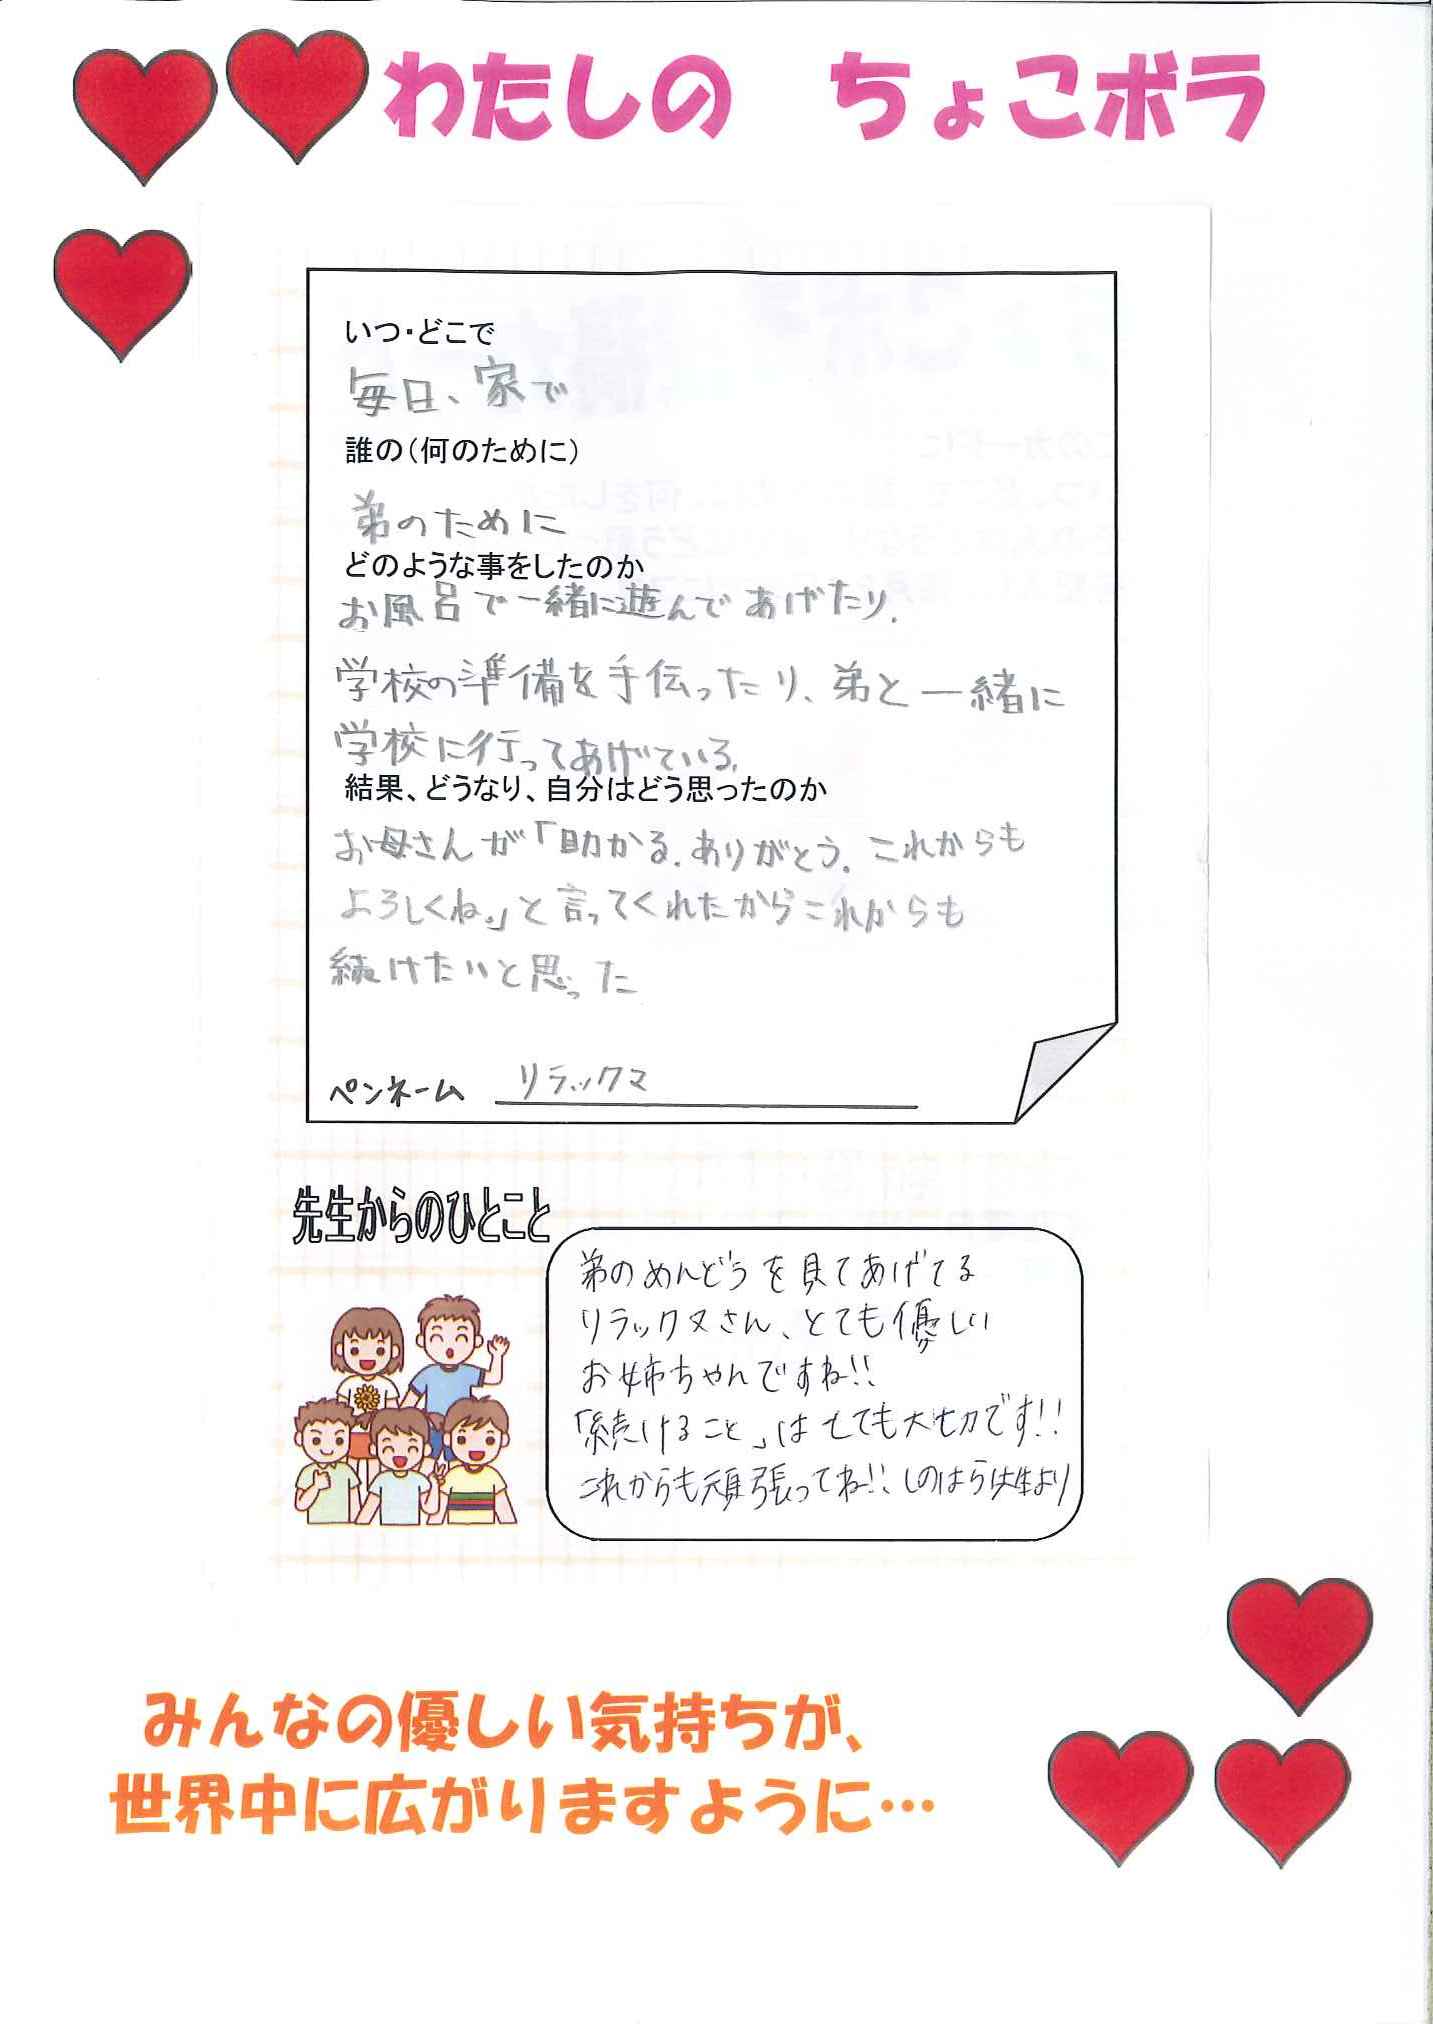 わたしの　ちょこボラ
いつ・どこで
毎日、家で
誰の（何のために）
弟のために
どのような事をしたのか
お風呂で一緒に遊んであげたり、
学校の準備を手伝ったり、弟と一緒に
学校に行ってあげている。
結果、どうなり、自分はどう思ったのか
お母さんが「助かる。ありがとう。これからも
よろしくね。」と言ってくれたからこれからも
続けたいと思った
ペンネーム　リラックマ
先生からのひとこと
弟のめんどうを見てあげてる
リラックマさん、とても優しい
お姉ちゃんですね!!
「続けること」はとても大切です!!
これからも頑張ってね!! しのはら先生より
みんなの優しい気持ちが、
世界中に広がりますように…